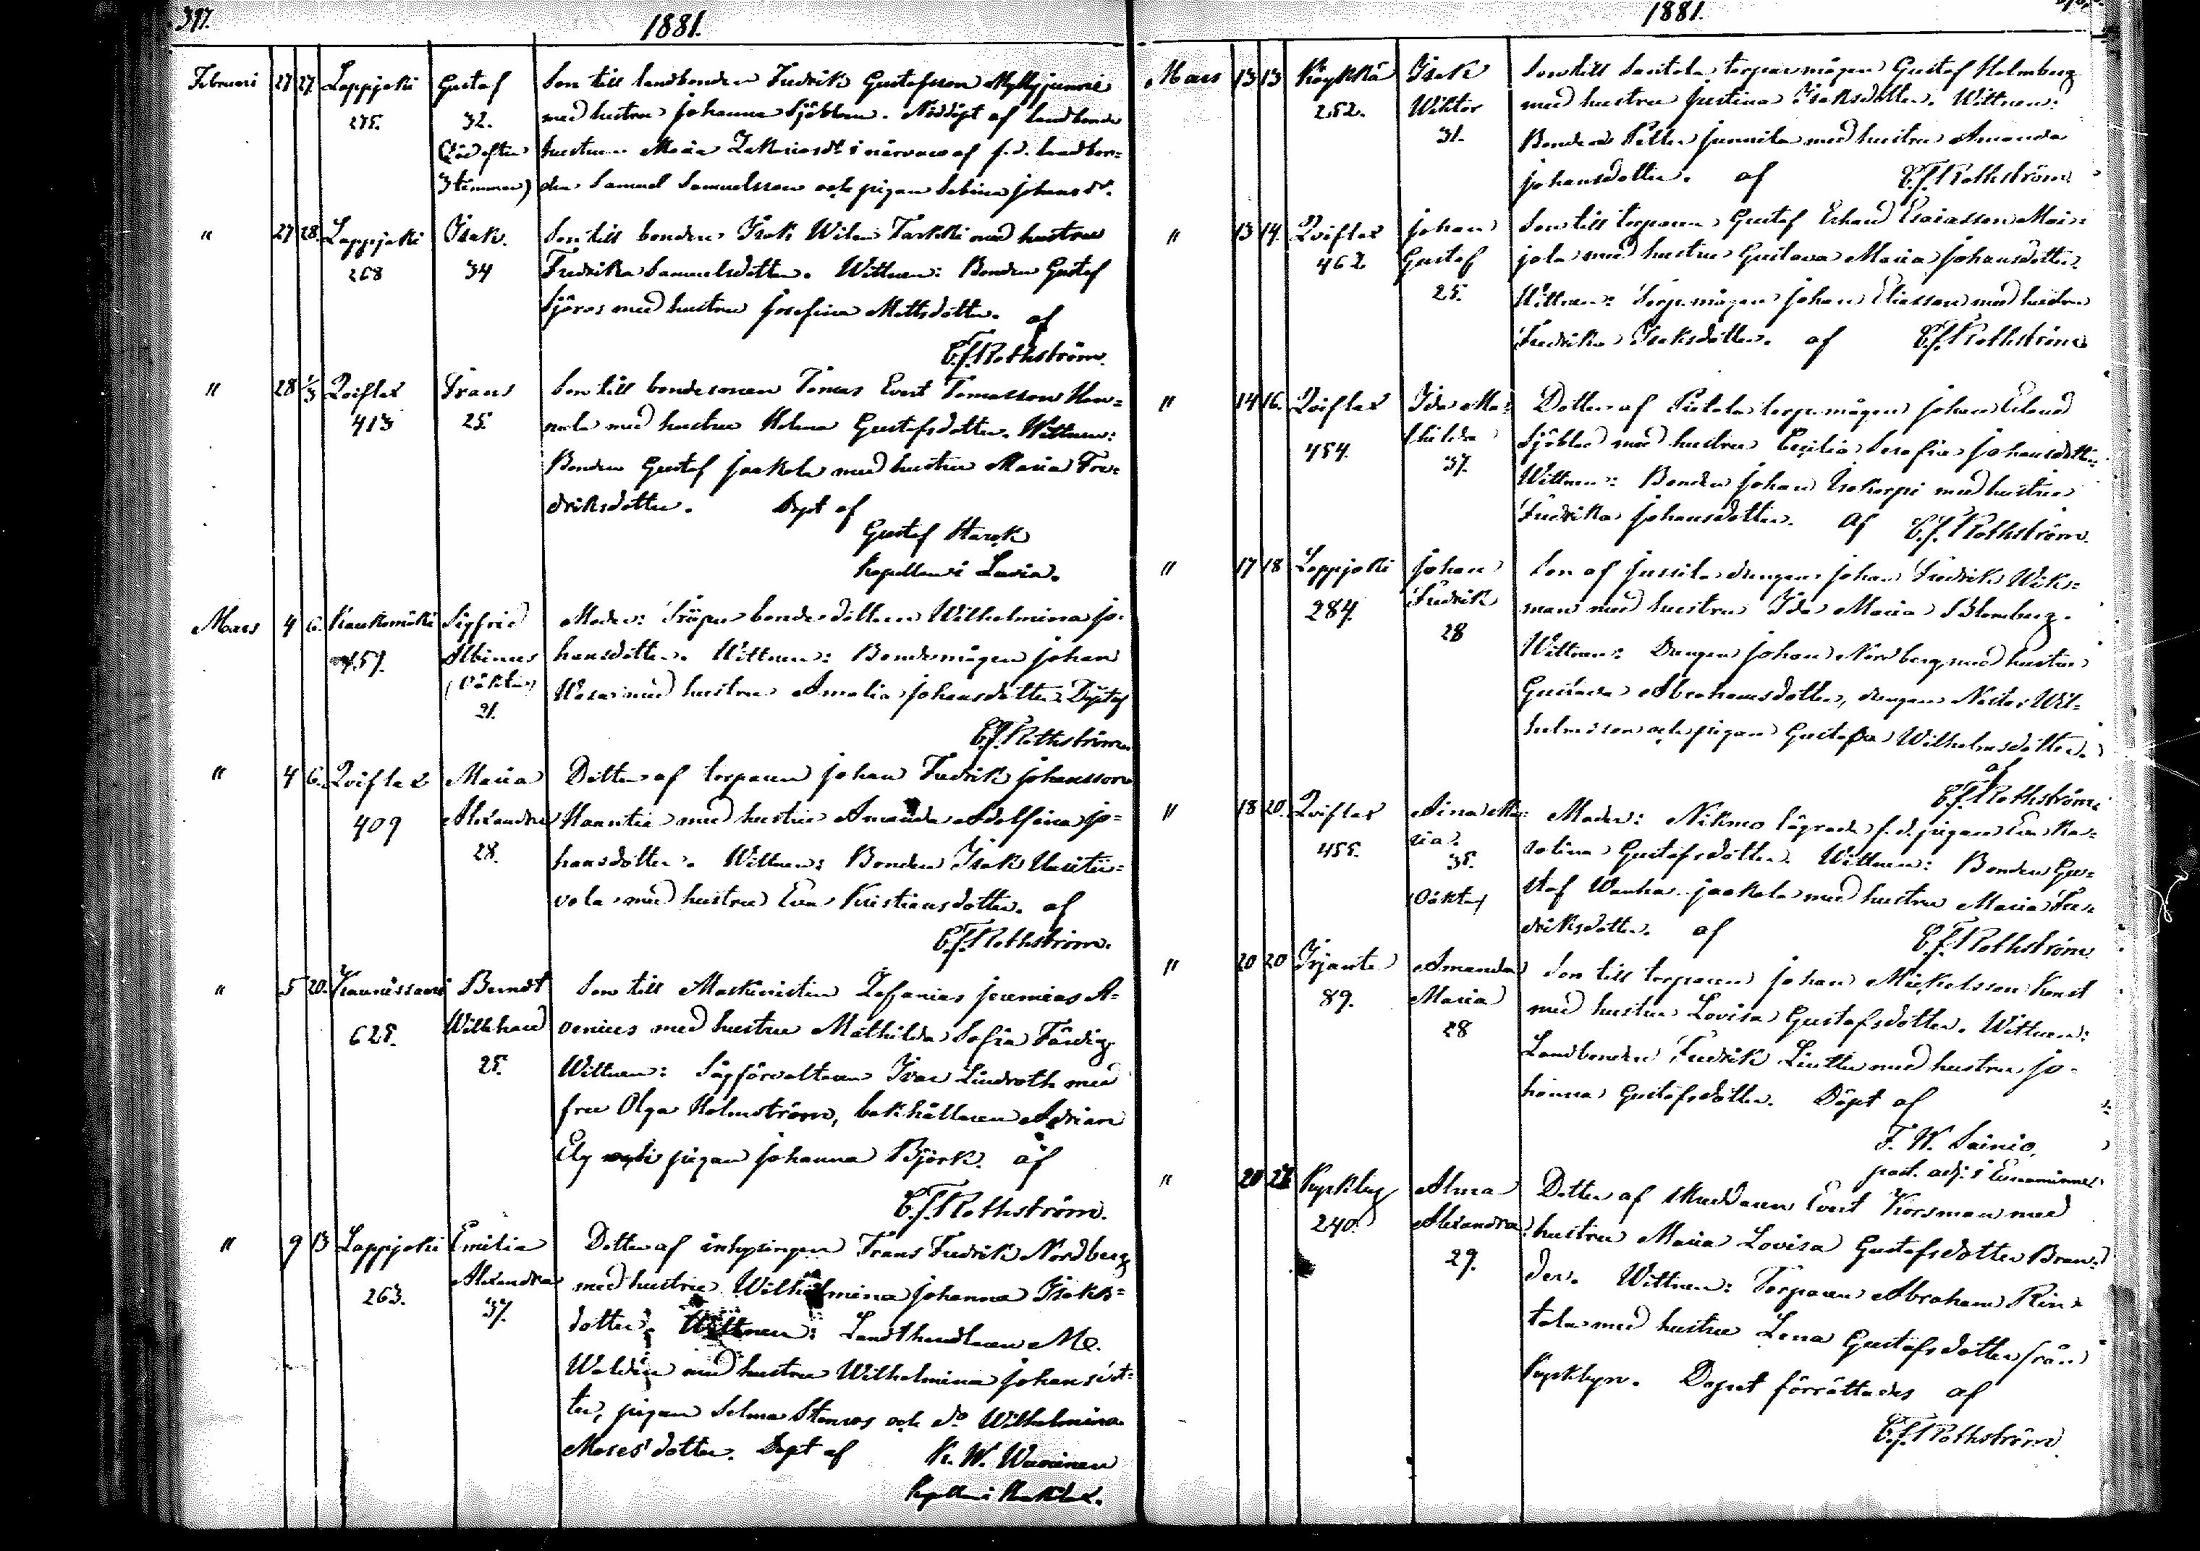 397.
1881.
Februari 27 27. Lappjoki Gustaf Son till landbonden Fredrik Gustafsson Myllyjunnri
275. 32. med hustru Johanna Sjöblom. Nöddöpt af landbonde
(Död efter hustrun Maria Zakariasdr i närvaro af f.d. landbon=
3 timmar) den Samuel Samuelsson och pigan Sabina Johansdr.
" 27 28. Lappjoki Isak. Son till bonden Isak Wilen Tarkki med hustru
268 34 Fredrika Samuelsdotter. Wittnen: Bonden Gustaf
Sjöros med hustru Josefina Mattsdotter. af
C.J. Rothström.
" 28 1/3 Qviflax Frans Son till bondesonen Tomas Evert Tomasson Han=
413 25. nula med hustru Helena Gustafsdotter. Wittnen:
Bonden Gustaf Jaakola med hustru Maria Fre=
driksdotter. Döpt af
Gustaf Starck
Kapellan i Lavia.
Mars 4 6. Kaukomäki Sigfrid Moder: Fröjus bondedottern Wilhelmina Jo-
457. Albinus hansdotter. Wittnen: Bondemågen Johan
(Oäkta) Wasa med hustru Amalia Johansdotter. Döpt af
21. C.J. Rothström.
" 4 6. Qviflax Maria Dotter af torparen Johan Fredrik Johansson
409 Alexandra Haantie med hustru Amanda Adolfina Jo=
28. hansdotter. Wittnen: Bonden Isak Uusitu=
vola med hustru Eva Kristiansdotter. af
C.J. Rothström.
" 5 20. Kaunissaari Berndt Son till Maskinisten Zefanias Jeremias A=
625. Wilehard venius med hustru Mathilda Sofia Färdig
25. Wittnen: Sågförvaltaren Ivar Lindroth med
fru Olga Holmström, bokhållaren Adrian
Ely och pigan Johanna Björk. af
C.J. Rothström.
" 9 13 Lappjoki Emilia Dotter af inhysingen Frans Fredrik Nordberg
263. Alexandra med hustru Wilhelmina Johanna Isaks=
37. dotter. Wittnen: Landthandlaren M.
Waldén med hustru Wilhelmina Johansdot=
ter, pigan Selma Stenros och do Wilhelmina
Mosesdotter. Döpt af K. W. Waninen
1881.
Mars 13 13 Köykkä Isak Son till Santala torparemågen Gustaf Holmberg
252. Wiktor med hustru Justina Isaksdotter. Wittnen:
31. Bonden Petter Junnila med hustru Amanda
Johansdotter. af C.J. Rothström.
" 13 14. Qviflax Johan Son till torparen Gustaf Erhard Esaiasson Mai=
462 Gustaf jala med hustru Gustava Maria Johansdotter.
25. Wittnen: Torp.mågen Johan Eliasson med hustru
Fredrika Isaksdotter. af C.J. Rothström
" 14 16. Qviflax Ida Ma= Dotter af Pietola torp.mågen Johan Erland
454. thilda Sjöblad med hustru Cecilia Serafia Johansdotter
37. Wittnen: Bonden Johan Isokorpi med hustru
Fredrika Johansdotter. af C.J. Rothström.
" 17 18 Lappjoki Johan Son af Jussila drängen Johan Fredrik Wiks=
284. Fredrik man med hustru Ida Maria Blomberg.
28 Wittnen: Drengen Johan Nordberg med hustru
Gustava Abrahamsdotter, drengen Nestor Wil=
helmsson och pigan Gustafva Wilhelmsdotter.
af
C.J. Rothström
" 18 20. Qviflax Aina Ma= Moder: Nikmo lägrade f.d. pigan Eva Ka=
455. ria. rolina Gustafsdotter. Wittnen: Bonden Gus=
35. taf Wanha-Jaakola med hustru Maria Fre=
(Oäkta) driksdotter. af C.J. Rothström
" 20 20 Irjante Amanda Son till torparen Johan Mickelsson Konst
89. Maria med hustru Lovisa Gustafsdotter. Wittnen:
28 Landbonden Fredrik Lintu med hustru Jo-
hanna Gustafsdotter. Döpt af
F. W. Sainio,
past. adj. i Euraminne.
" 20 22 Kyrkby Alma Dotter af skräddaren Evert Korsman med
240. Alexandra hustru Maria Lovisa Gustafsdotter Bran=
29. der. Wittnen: Torparen Abraham Rin=
tala med hustru Lena Gustafsdotter från
Kyrkbyn. Dopet förrättades af
C.J. Rothström.